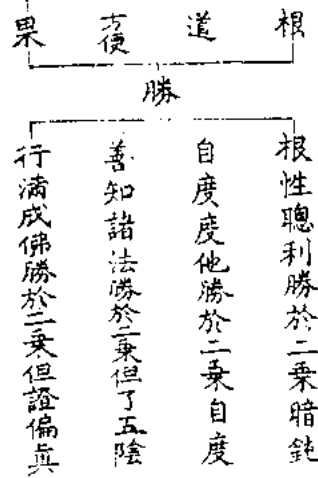 根
道
方便
果
勝
根性聰利勝於二乗暗鈍
自度度他勝於二乗自度
善知諸法勝於二乗但了五陰
行滿成佛勝於二乗但證偏真